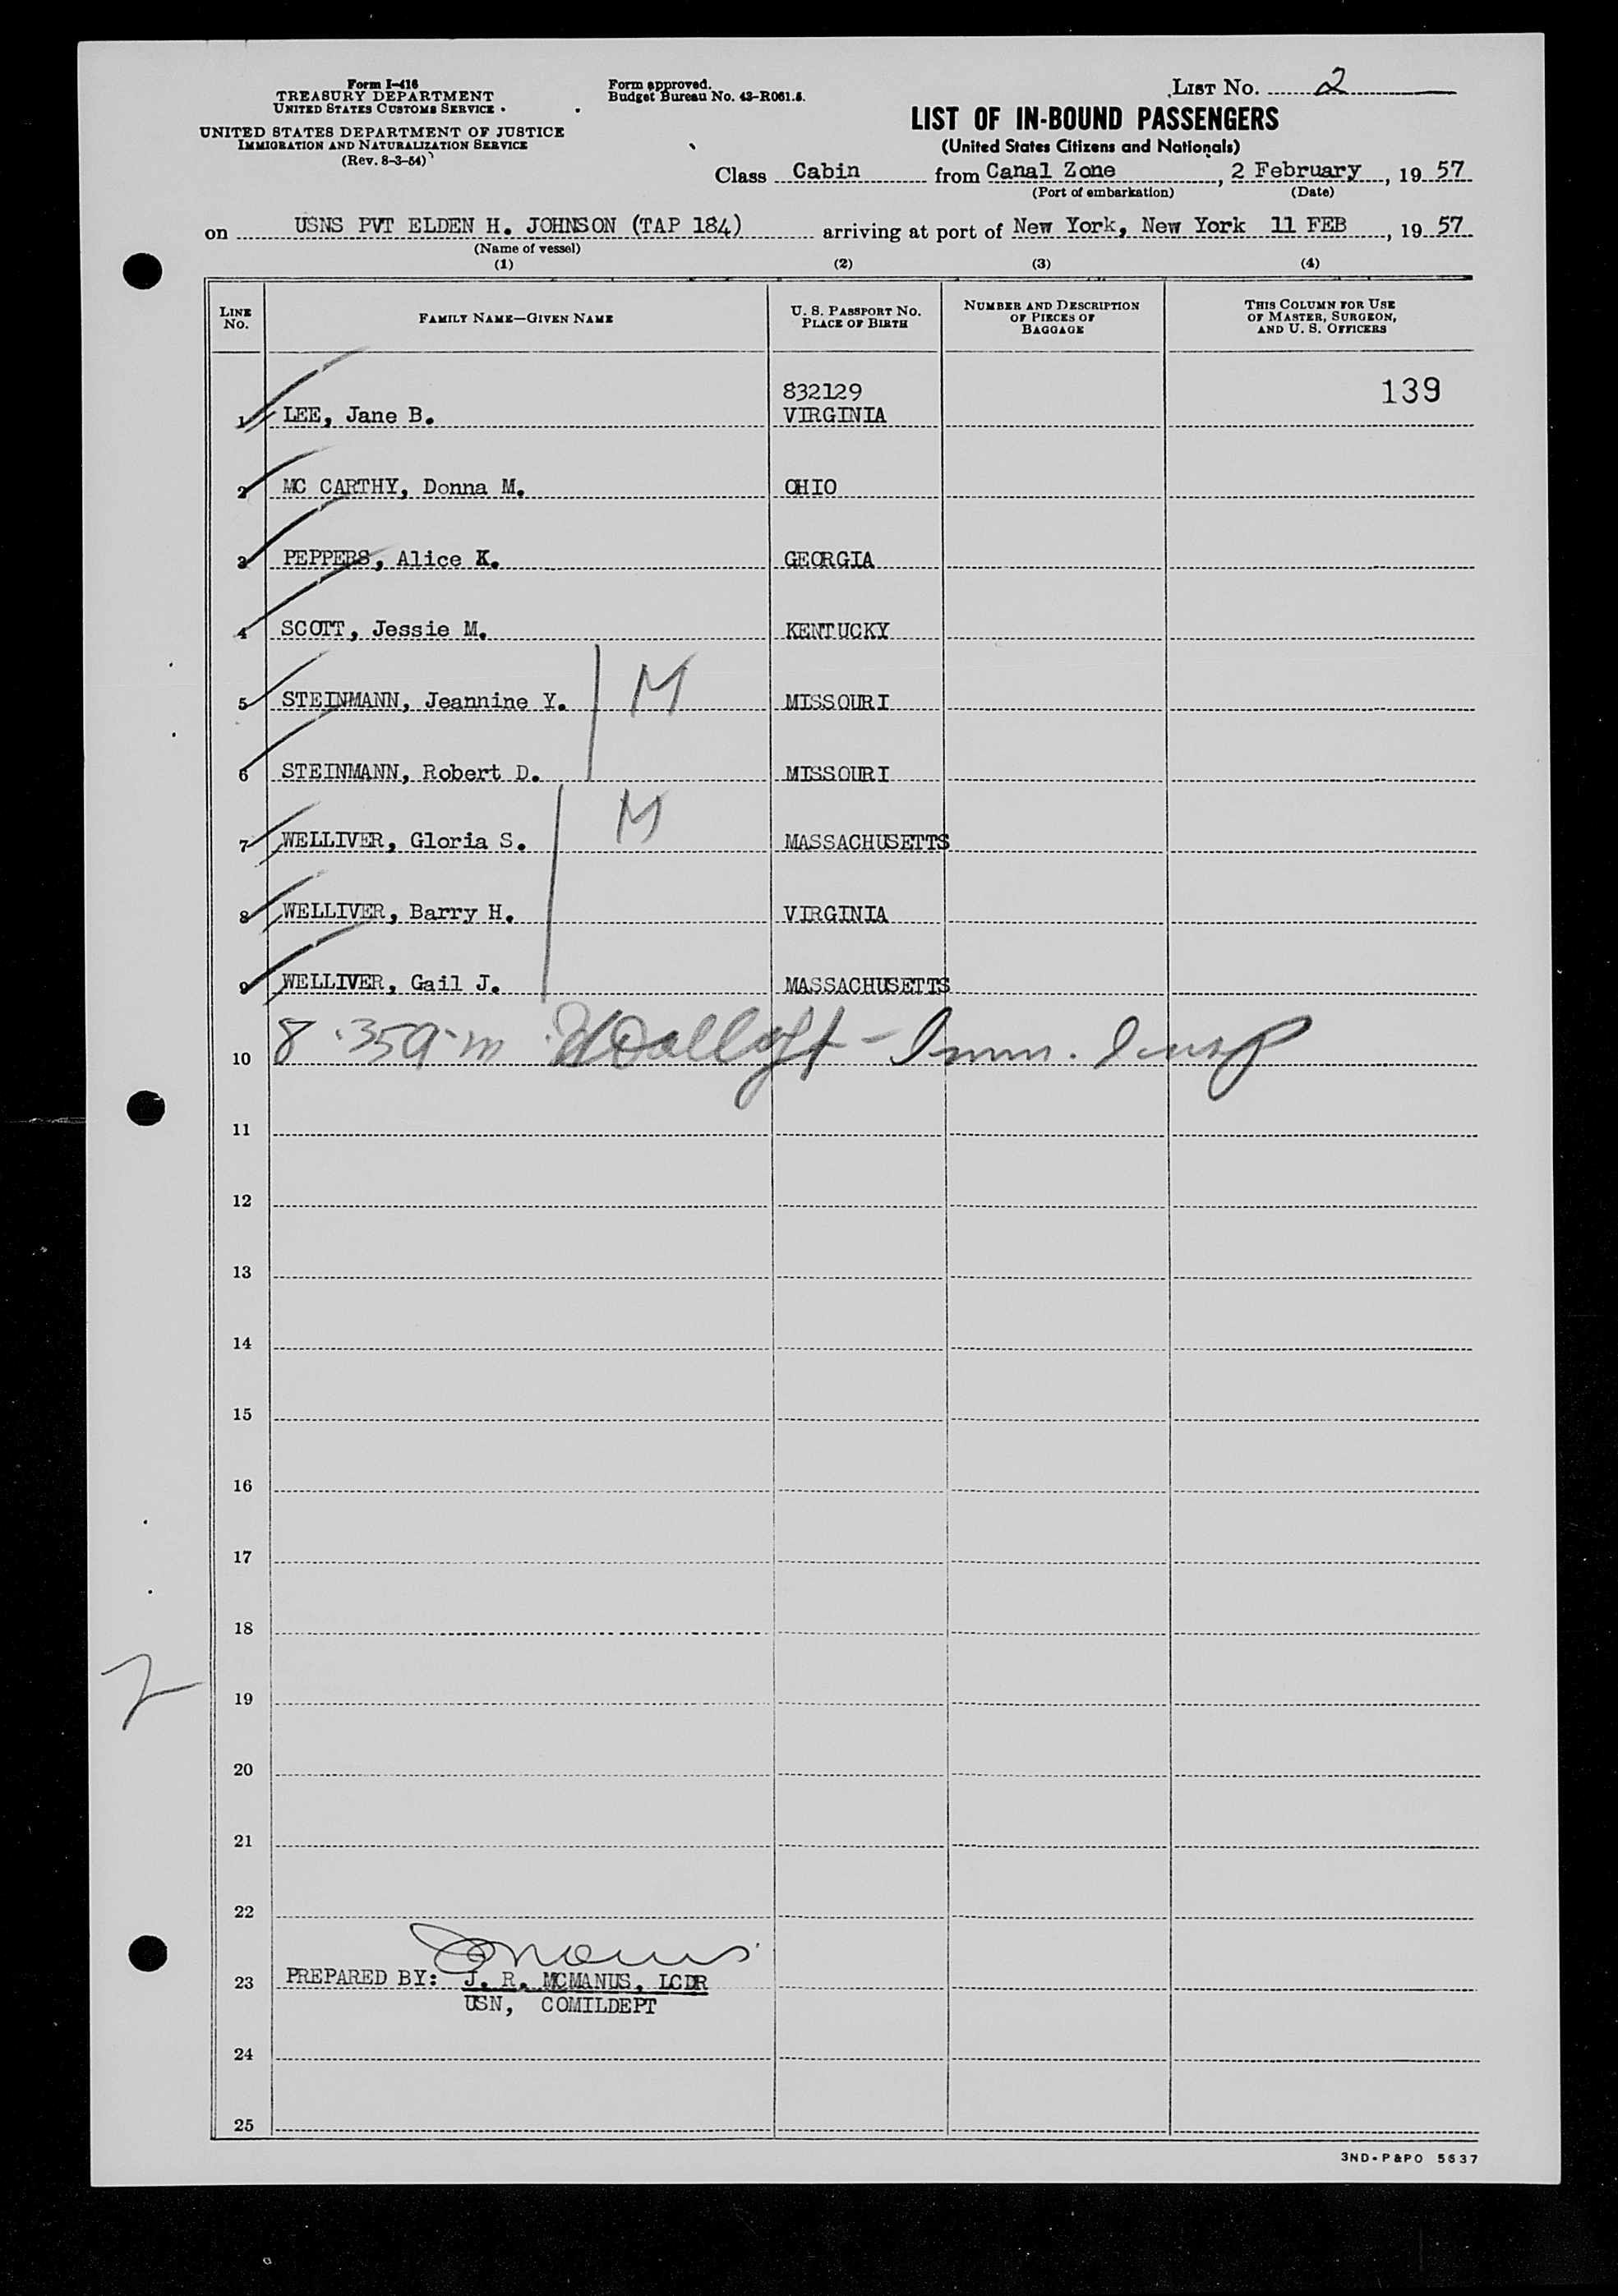 Form I-416
TREASURY DEPARTMENT
UNITED STATES CUSTOMS SERVICE
UNITED STATES DEPARTMENT OF JUSTICE
IMMIGRATION AND NATURALIZATION SERVICE
(Rev. 8-3-54)
Form approved.
Budget Bureau No. 43-R061.5.
LIST NO. 2
LIST OF IN-BOUND PASSENGERS
(United States Citizens and Nationals)
Class Cabin from Canal Zone, 2 February, 19 57
(Port of embarkation) (Date)
on USNS PVT ELDEN H. JOHNSON (TAP 184) arriving at port of New York, New York 11 FEB, 19 57
(Name of vessel)
(1) (2) (3) (4)
LINE NO. FAMILY NAME—GIVEN NAME U. S. PASSPORT NO. PLACE OF BIRTH NUMBER AND DESCRIPTION OF PIECES OF BAGGAGE THIS COLUMN FOR USE OF MASTER, SURGEON, AND U. S. OFFICERS
832129 139
1 LEE, Jane B. VIRGINIA
2 MC CARTHY, Donna M. OHIO
3 PEPPERS, Alice K. GEORGIA
4 SCOTT, Jessie M. KENTUCKY
5 STEINMANN, Jeannine Y. M MISSOURI
6 STEINMANN, Robert D. MISSOURI
7 WELLIVER, Gloria S. M MASSACHUSETTS
8 WELLIVER, Barry H. VIRGINIA
9 WELLIVER, Gail J. MASSACHUSETTS
10 8.35 a.m. - Imm. Insp
11
12
13
14
15
16
17
18
19
20
21
22
23 PREPARED BY: J. R. MCMANUS, LCDR
USN, COMILDEPT
24
25
3ND-P&PO 5537